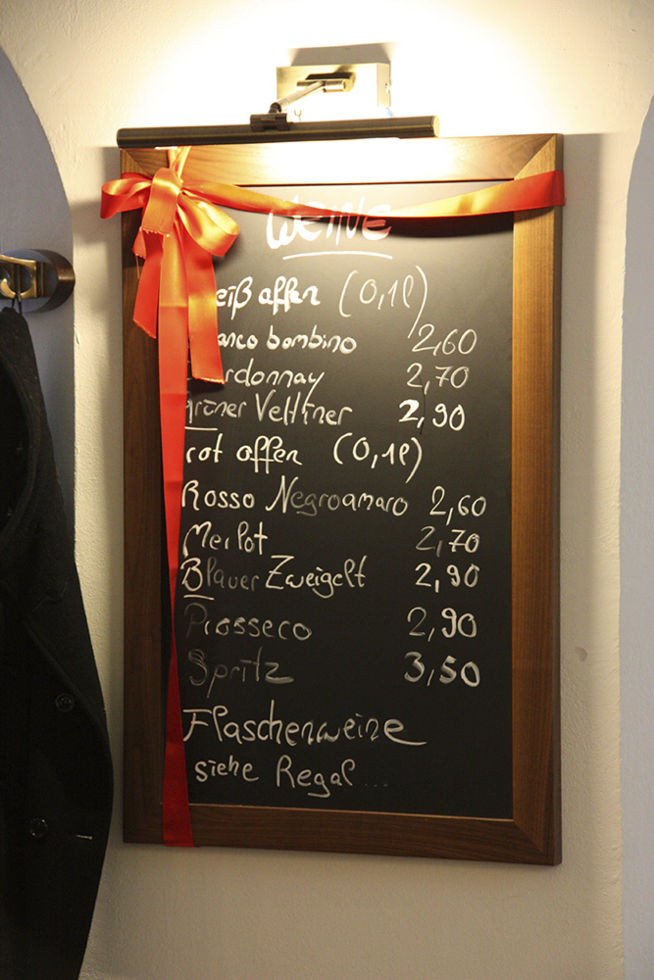 WEINE
eiß offen (0,1l)
anco bombino 2,60
rdonnay 2,70
Grüner Veltliner 2,90
rot offen (0,1l)
Rosso Negroamaro 2,60
Merlot 2,70
Blauer Zweigelt 2,90
Prosseco 2,90
Spritz 3,50
Flaschenweine
siehe Regal...